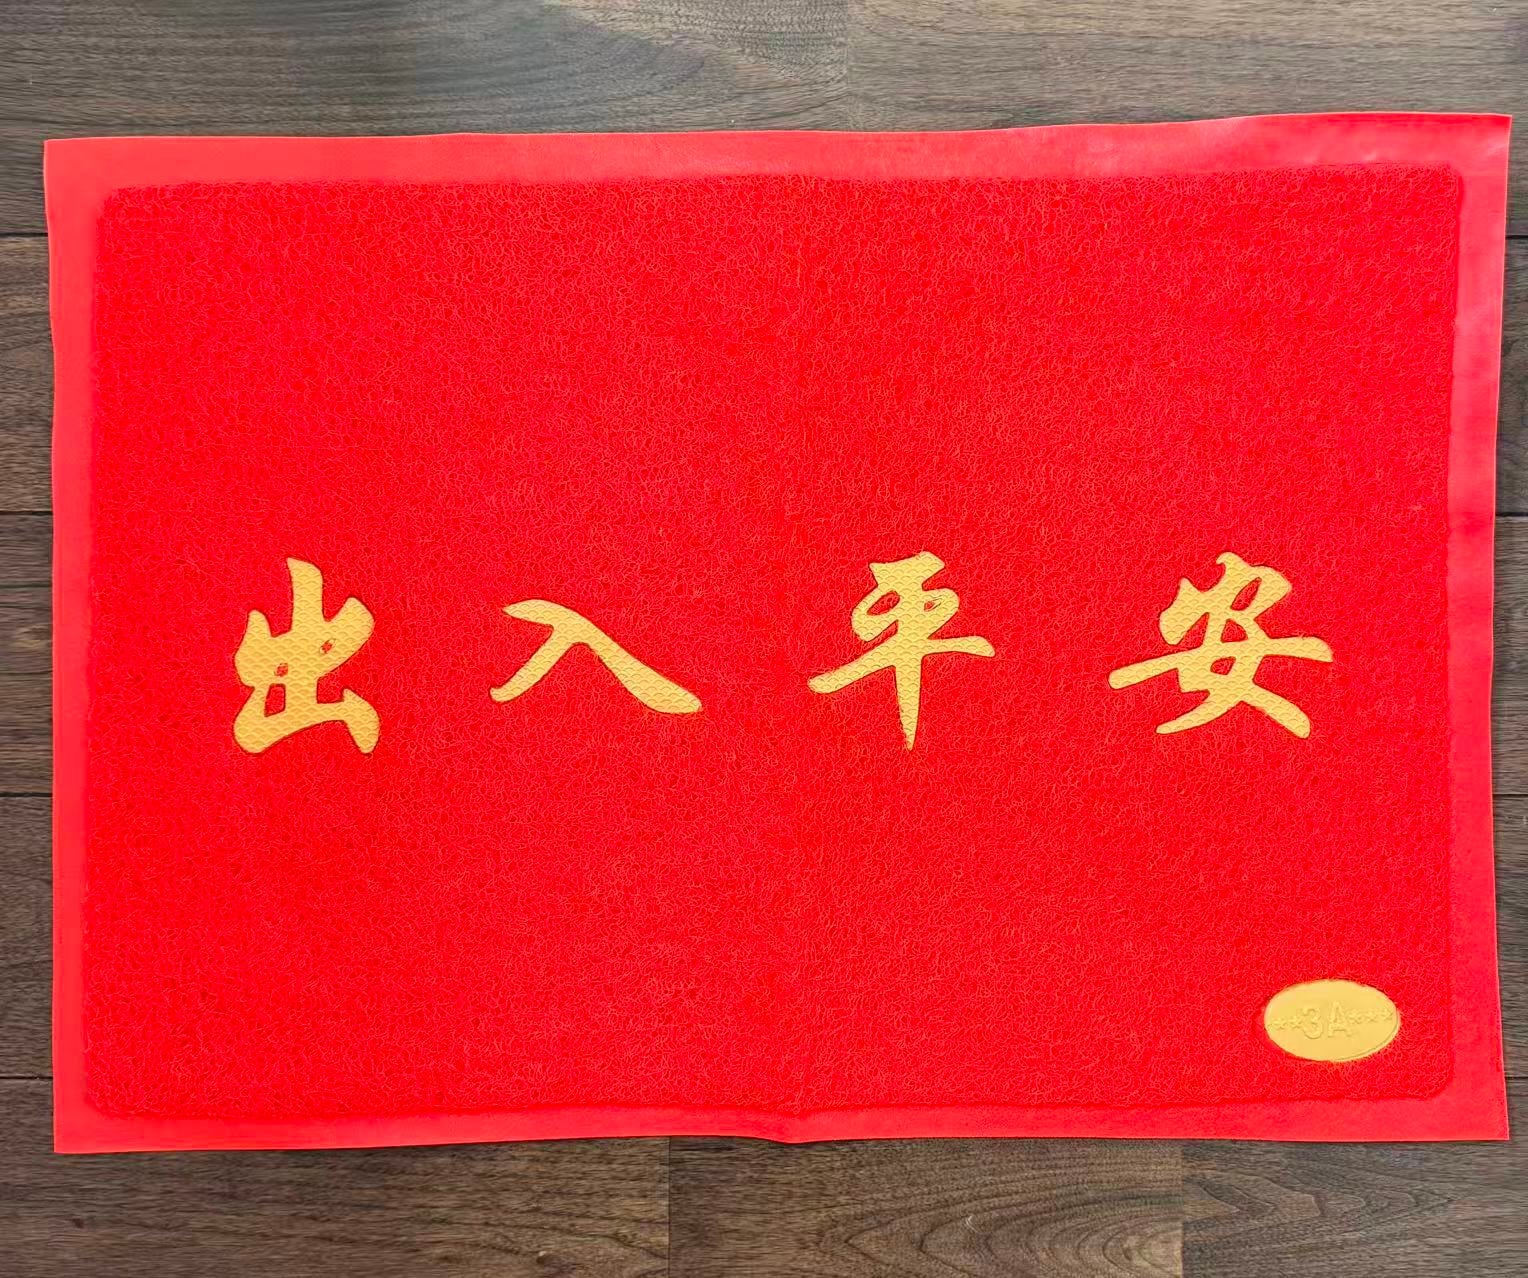 出入平安
3A